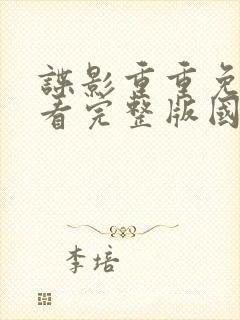 諜影重重免
看完整版國
李培